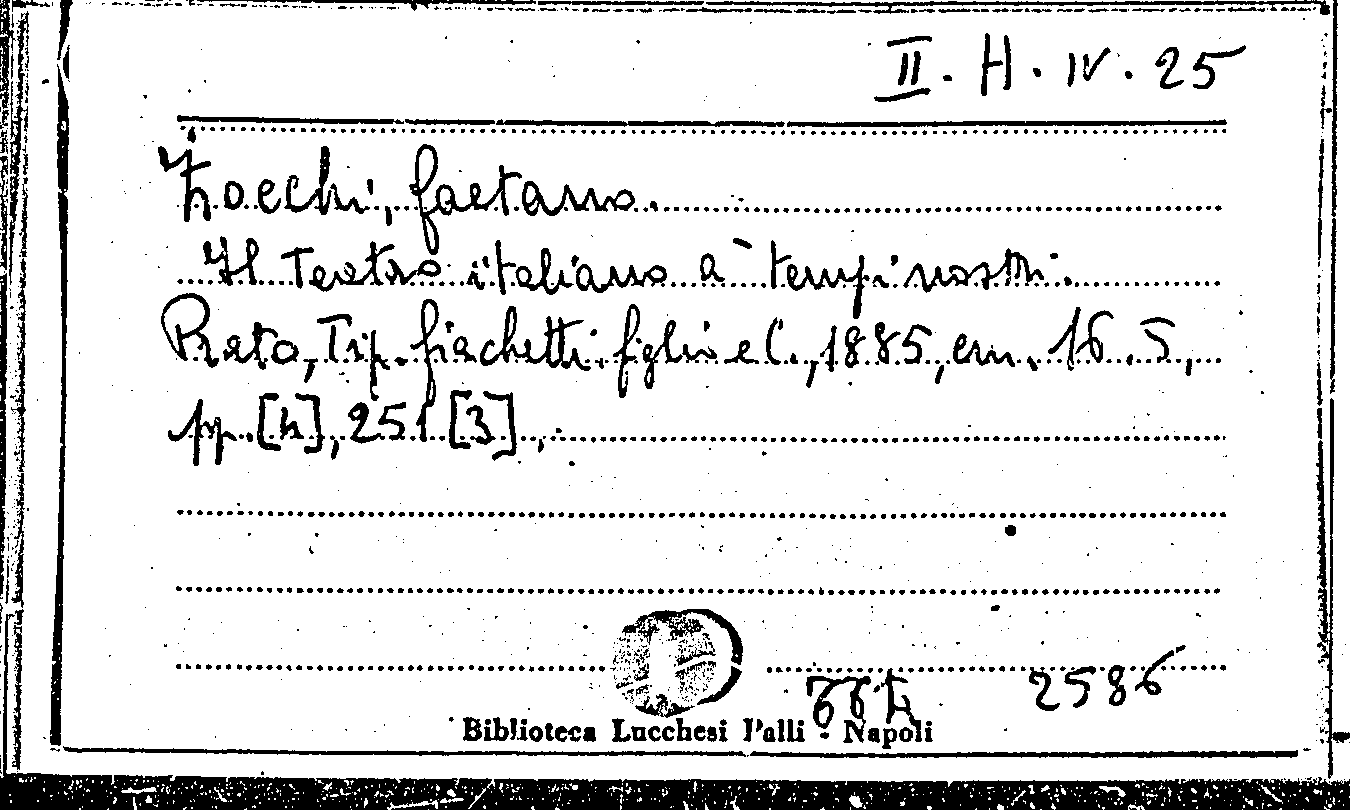 II. H. IV. 25
Zocchi, Gaetano.
Il Teatro italiano a' tempi nostri.
Prato, Tip. Giachetti, figlio e C., 1885, cm. 16.5,
pp. [4], 251 [3].
2586
Biblioteca Lucchesi Palli - Napoli